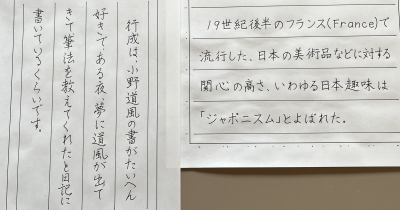 行成は、小野道風の書がたいへん
好きである夜、夢に道風が出て
きて筆法を教えてくれたと日記に
書いているくらいです。
19世紀後半のフランス(France)で
流行した、日本の美術品などに対する
関心の高さ、いわゆる日本趣味は
「ジャポニスム」とよばれた.